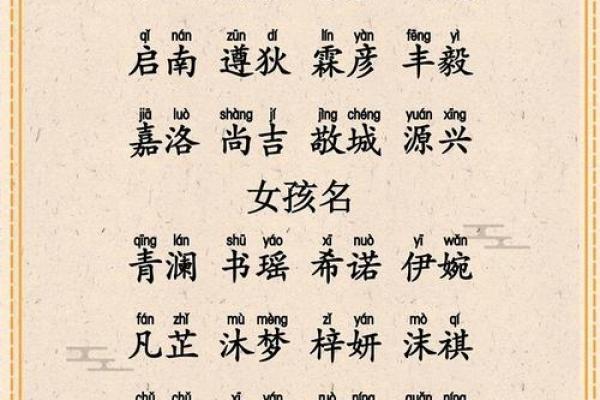 qǐ nán zūn dí lín yàn fēng yì
启南 遵狄 霖彦 丰毅
jiā luò shàng jí jìng chéng yuán xīng
嘉洛 尚吉 敬城 源兴
女孩名
qīng lán shū yáo xī nuò yī wǎn
青澜 书瑶 希诺 伊婉
fán zhǐ mù mèng zǐ yán mò qí
凡芷 沐梦 梓妍 沫祺
chǔ chǔ xī yán ruò níng quān níng